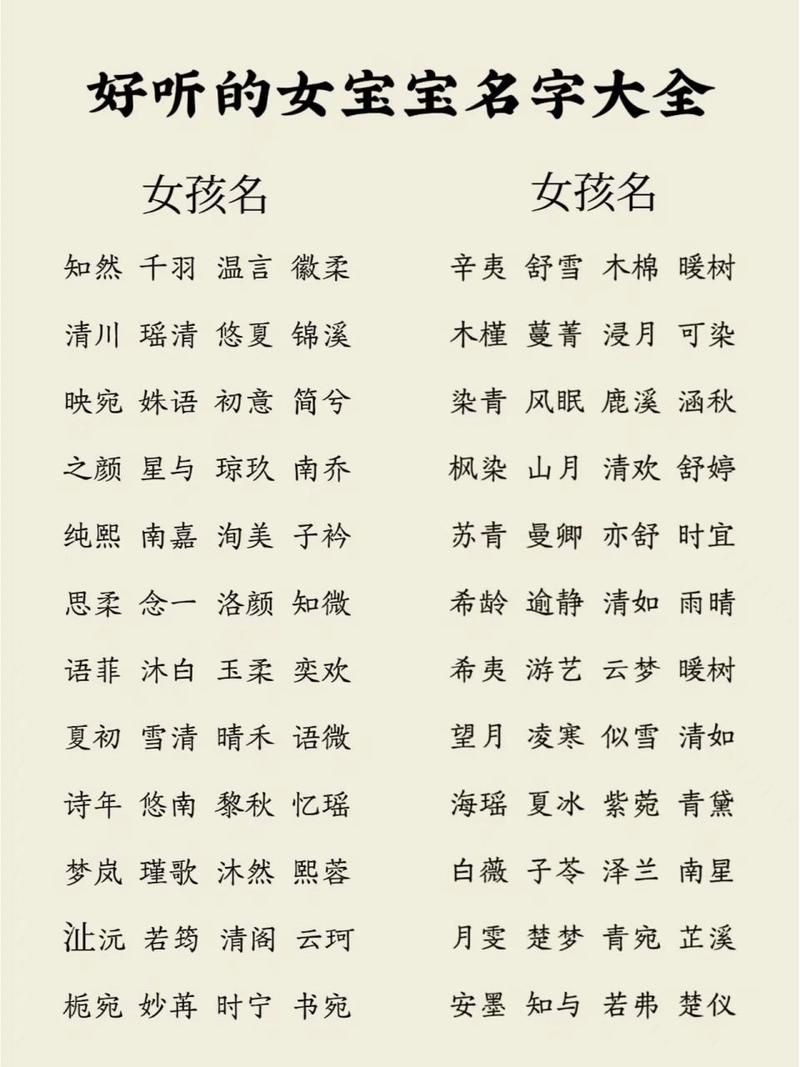 好听的女宝宝名字大全
女孩名
知然 千羽 温言 徽柔
清川 瑶清 悠夏 锦溪
映宛 姝语 初意 简兮
之颜 星与 琼玖 南乔
纯熙 南嘉 洵美 子衿
思柔 念一 洛颜 知微
语菲 沐白 玉柔 奕欢
夏初 雪清 晴禾 语微
诗年 悠南 黎秋 忆瑶
梦岚 瑾歌 沐然 熙蓉
沚沅 若筠 清阁 云珂
栀宛 妙苒 时宁 书宛
女孩名
辛夷 舒雪 木棉 暖树
木槿 蔓菁 浸月 可染
染青 风眠 鹿溪 涵秋
枫染 山月 清欢 舒婷
苏青 曼卿 亦舒 时宜
希龄 逾静 清如 雨晴
希夷 游艺 云梦 暖树
望月 凌寒 似雪 清如
海瑶 夏冰 紫菀 青黛
白薇 子苓 泽兰 南星
月雯 楚梦 青宛 芷溪
安墨 知与 若弗 楚仪